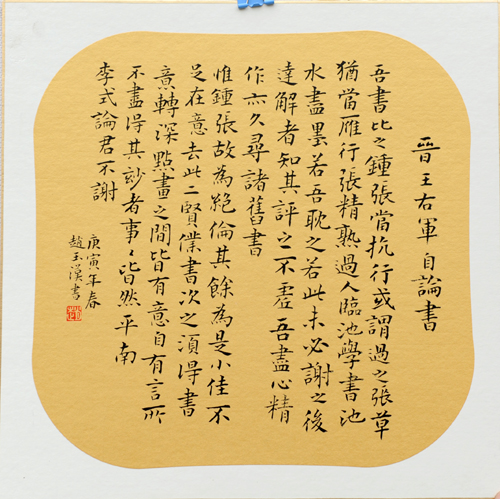 晉王右軍自論書
吾書比之鍾張當抗行或謂過之張草
猶當雁行張精熟過人臨池學書池
水盡墨若吾耽之若此未必謝之後
達解者知其評之不虛吾盡心精
作亦久尋諸舊書
惟鍾張故為絕倫其餘為是小佳不
足在意去此二賢僕書次之須得書
意轉深點畫之間皆有意自有言所
不盡得其妙者事々皆然平南
李式論君不謝
庚寅年春
趙玉漢書